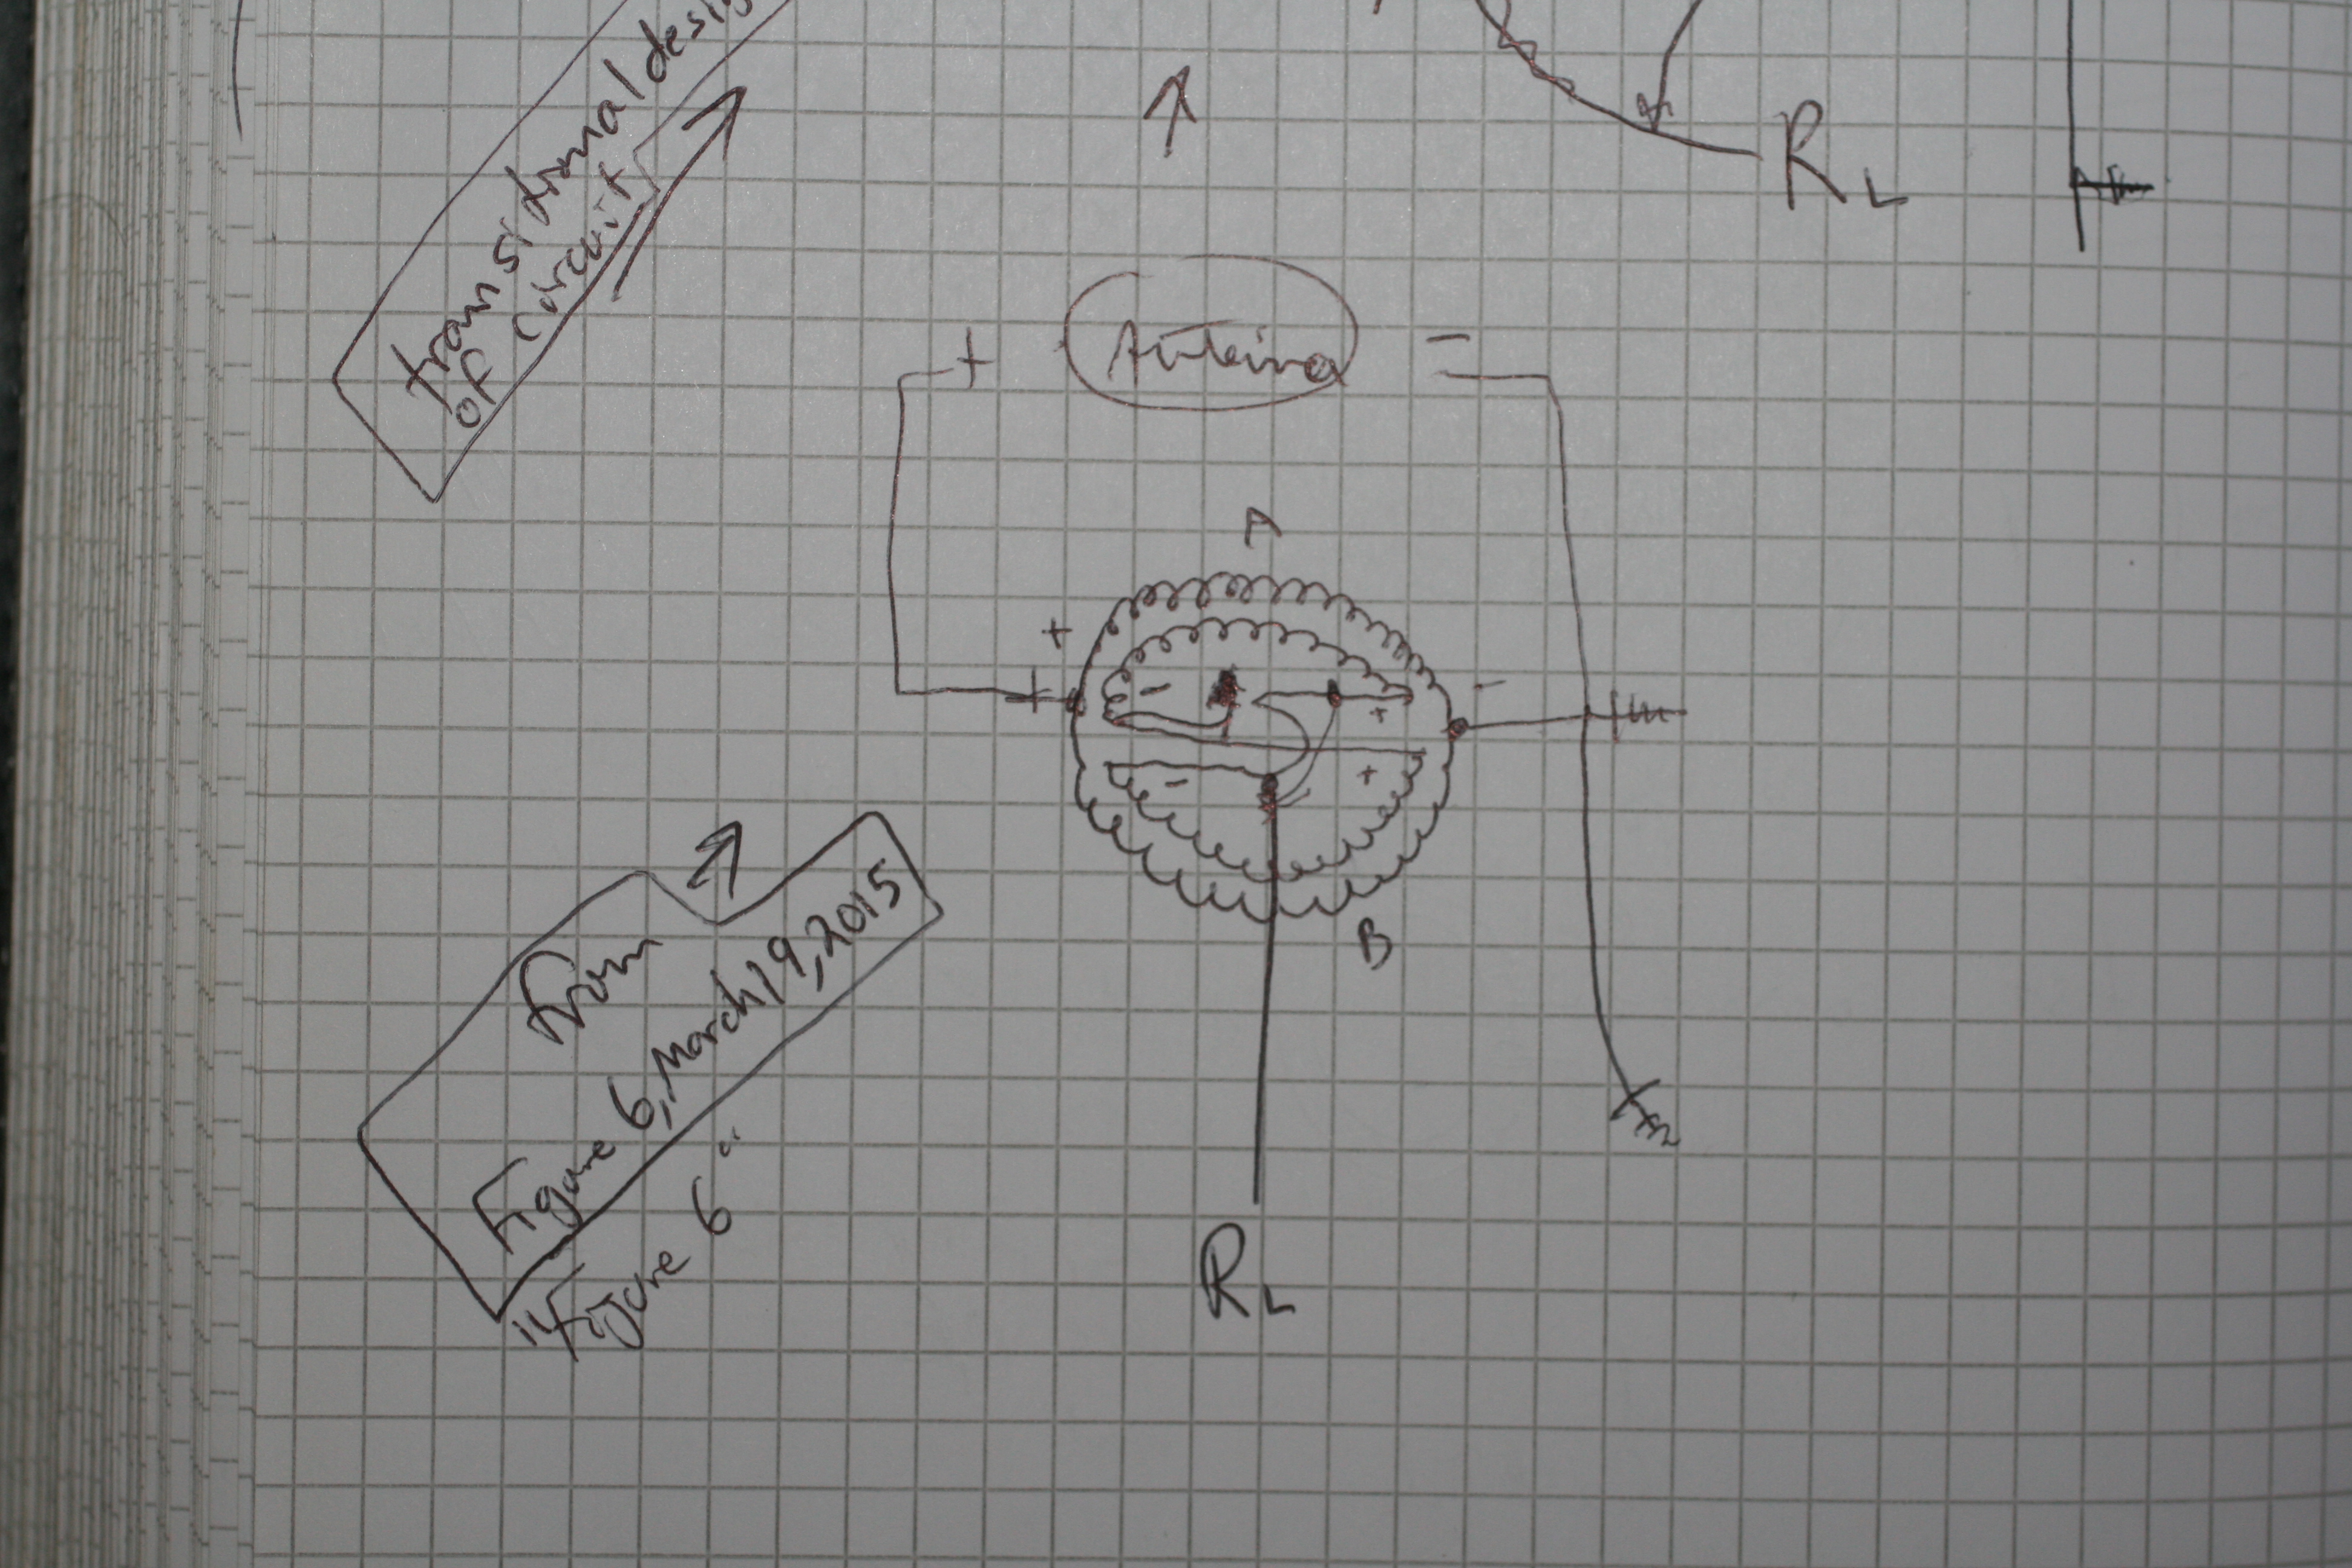 transitional desig
of Circuit
R L
+ Antenna -
A
+ -
+
- +
- +
B
from
Figure 6, March 19, 2015
"Figure 6"
R L